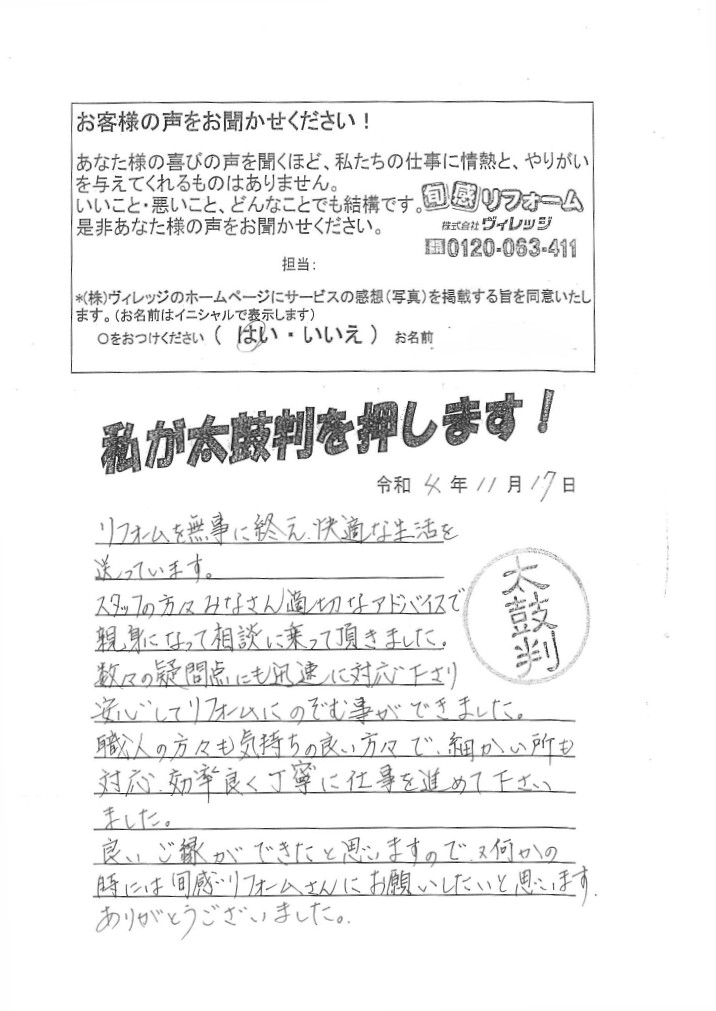 お客様の声をお聞かせください！
あなた様の喜びの声を聞くほど、私たちの仕事に情熱と、やりがい
を与えてくれるものはありません。
いいこと・悪いこと、どんなことでも結構です。
是非あなた様の声をお聞かせください。
旬感リフォーム
株式会社ヴィレッジ
0120-063-411
担当：
*(株)ヴィレッジのホームページにサービスの感想(写真)を掲載する旨を同意いたし
ます。(お名前はイニシャルで表示します)
○をおつけください ( はい ・ いいえ ) お名前
私が太鼓判を押します！
令和 4 年 11 月 17 日
リフォームを無事に終え、快適な生活を
送っています。
スタッフの方々みなさん適切なアドバイスで
親身になって相談に乗って頂きました。
数々の疑問点にも迅速に対応下さり
安心してリフォームにのぞむ事ができました。
職人の方々も気持ちの良い方々で、細かい所も
対応、効率良く丁寧に仕事を進めて下さい
ました。
良いご縁ができたと思いますので、又何かの
時には旬感リフォームさんにお願いしたいと思います。
ありがとうございました。
太鼓判